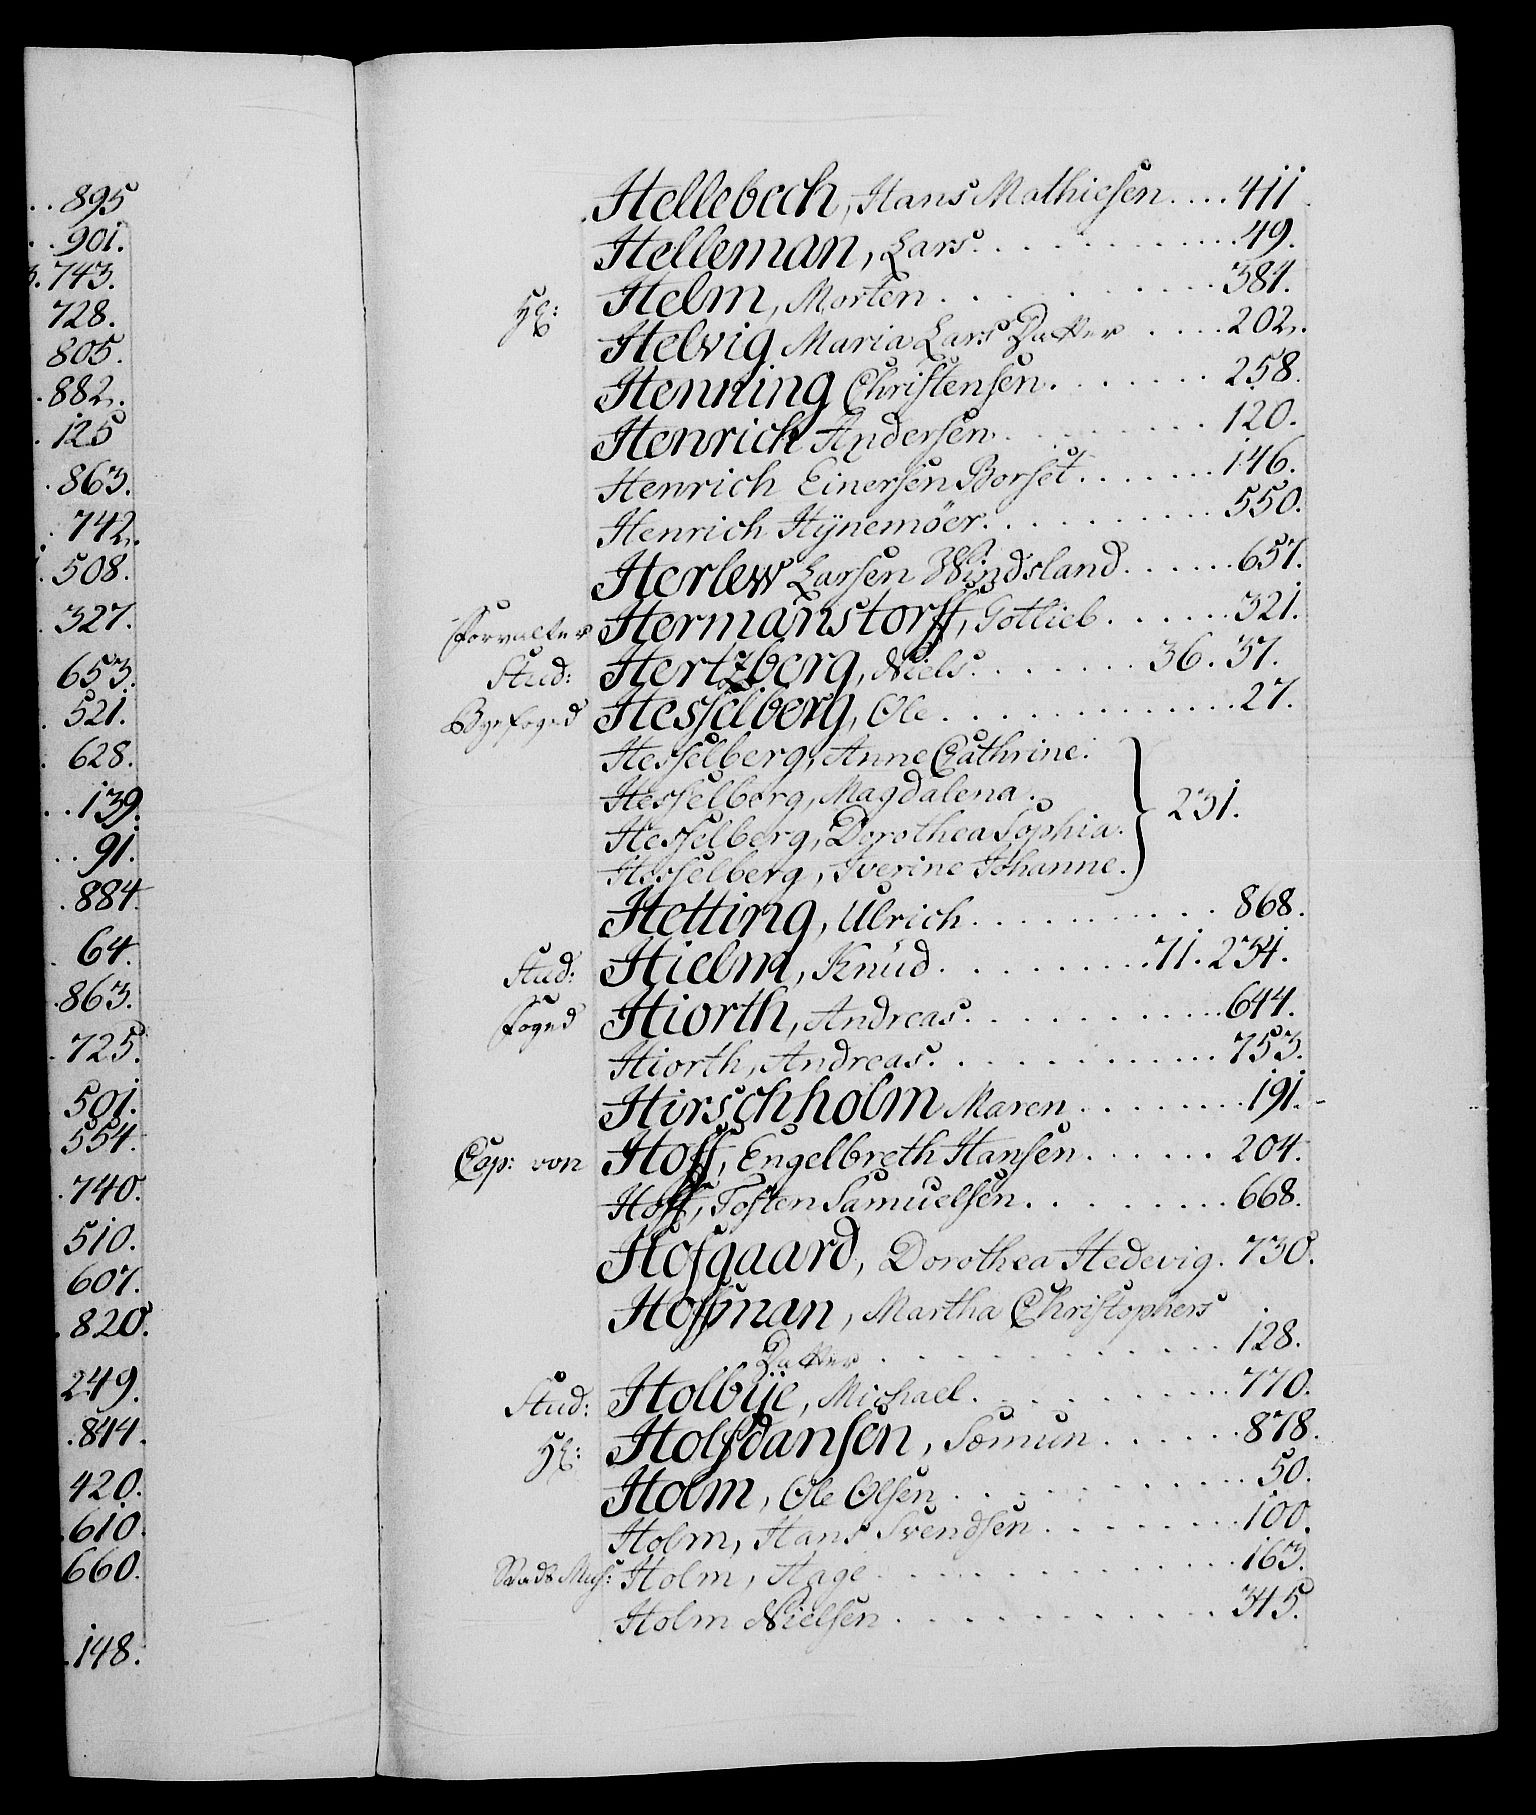 895
901.
743.
728.
805.
882.
125
863.
742.
508.
327.
653.
521.
628.
139.
91.
884
64.
863.
725.
501.
554.
740.
510.
607.
820.
249.
844.
420.
610.
660.
148.
Hellebech, Hans Mathiesen .... 411
Helleman, Lars. . . . . . . . 49.
Hr: Helm, Morten . . . . . . . 384.
Helvig Maria Lars Datter . . . . 202.
Henning Christensen. . . . . . 258.
Henrich Andersen . . . . . . . 120.
Henrich Einersen Borset . . . . . . 146.
Henrich Hÿnemöer. . . . . . . 550.
Herlew Larsen Windsland . . . . . . 657.
Forvalter Hermanstorff, Gotlieb . . . . . . 321.
Stud: Hertzberg, Niels. . . . . . . 36. 37.
Byefoged Hesselberg, Ole . . . . . . . 27.
Hesselberg, Anne Cathrine.
Hesselberg, Magdalena.
Hesselberg, Dorothea Sophia. } 231.
Hesselberg, Iverine Johanne.
Hetting, Ulrich . . . . . . . 868.
Stud: Hielm, Knud . . . . . . . 71. 234.
Foged Hiorth, Andreas. . . . . . . 644.
Hiorth, Andreas. . . . . . . 753.
Hirschholm Maren . . . . . . . 191.
Cap: von Hoff, Engelbreth Hansen . . . . . . 204.
Hoff, Tosten Samuelsen . . . . . . . 668.
Hofgaard, Dorothea Hedevig. 730.
Hoffman, Martha Christophers
Datter . . . . . . . 128.
Stud: Holbÿe, Michael . . . . . . . 770.
Hr: Holfdansen, Sæmun . . . . . . 878.
Holm, Ole Olsen . . . . . . . 50.
Holm, Hans Svendsen . . . . . . . 100.
Stads Mus: Holm, Hage . . . . . . . 163.
Holm Nielsen . . . . . . . 345.